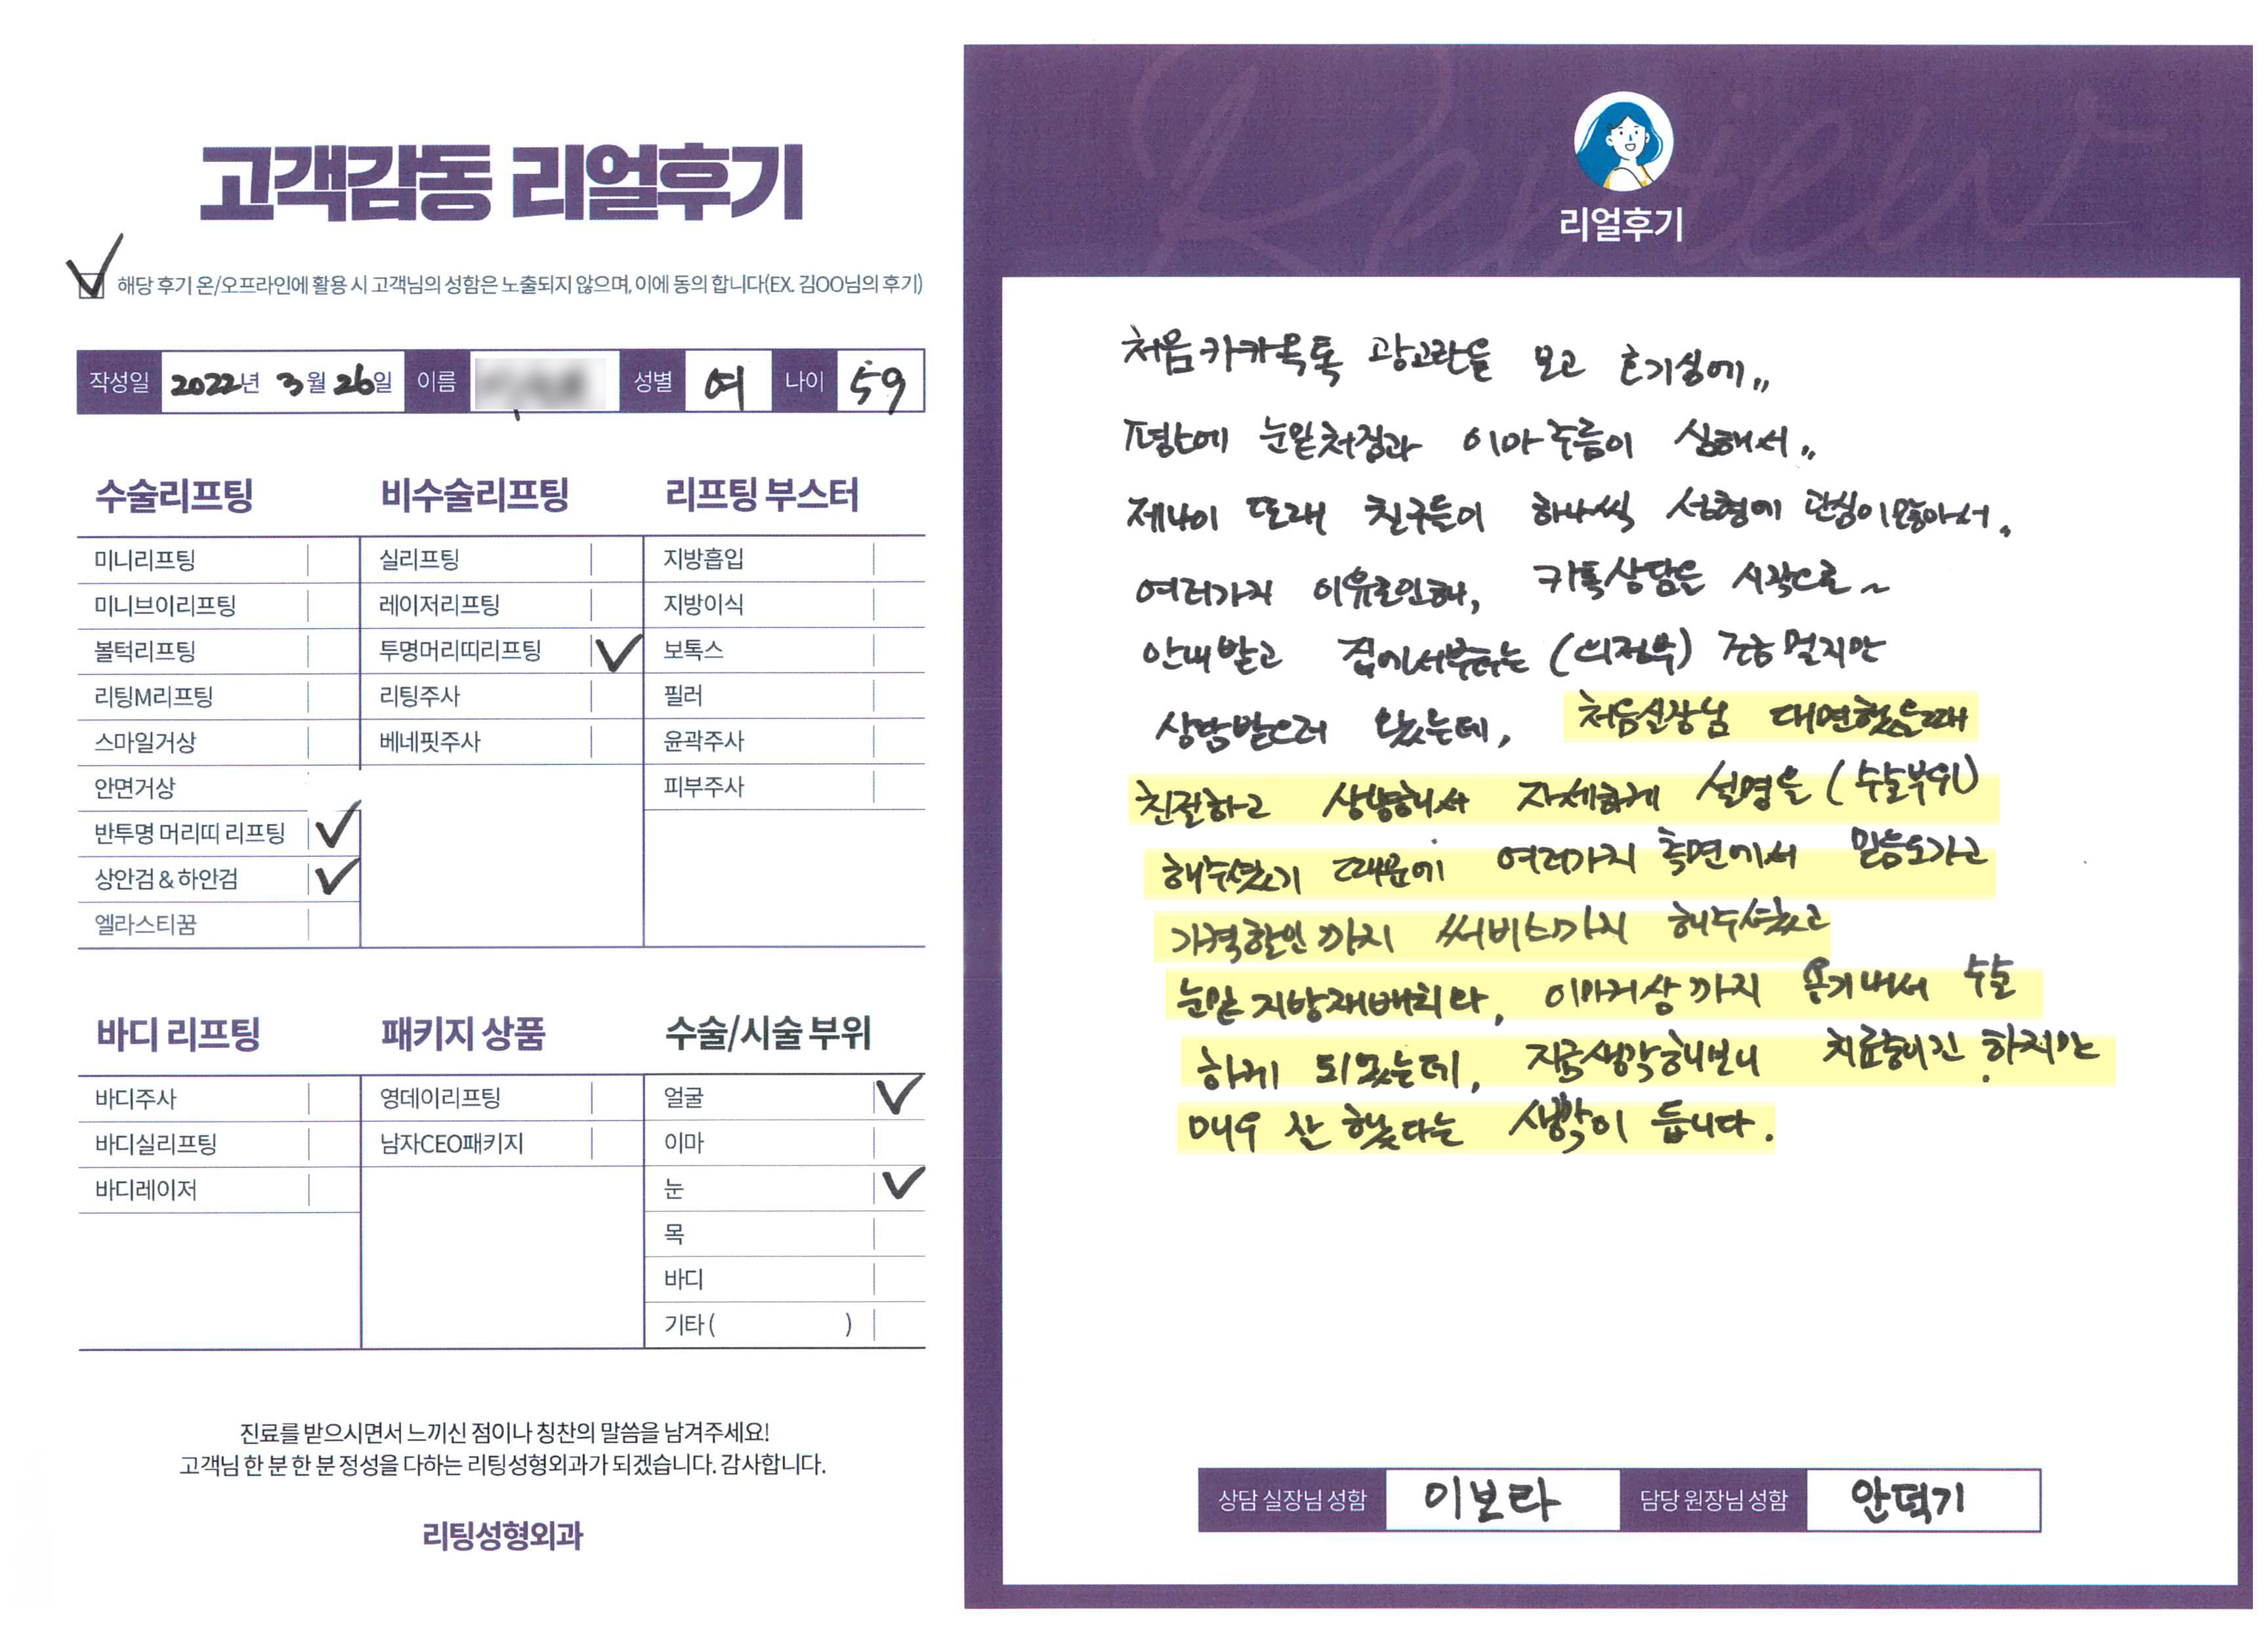 고객감동 리얼후기
해당 후기 온/오프라인에 활용 시 고객님의 성함은 노출되지 않으며, 이에 동의 합니다(EX. 김OO님의 후기)
작성일 2022년 3월 26일 이름 성별 여 나이 59
수술리프팅
미니리프팅
미니브이리프팅
볼턱리프팅
리팅M리프팅
스마일거상
안면거상
반투명 머리띠 리프팅
상안검 & 하안검
엘라스티꿈
비수술리프팅
실리프팅
레이저리프팅
투명머리띠리프팅
리팅주사
베네핏주사
리프팅 부스터
지방흡입
지방이식
보톡스
필러
윤곽주사
피부주사
바디 리프팅
바디주사
바디실리프팅
바디레이저
패키지 상품
영데이리프팅
남자CEO패키지
수술/시술 부위
얼굴
이마
눈
목
바디
기타 ( )
진료를 받으시면서 느끼신 점이나 칭찬의 말씀을 남겨주세요!
고객님 한 분 한 분 정성을 다하는 리팅성형외과가 되겠습니다. 감사합니다.
리팅성형외과
Review
리얼후기
처음 카카옥톡 광고란을 보고 호기심에,,
평상에 눈밑처짐과 이마주름이 심해서,,
제나이 또래 친구들이 하나씩 성형에 관심이많아서,
여러가지 이유로인해, 카톡상담은 시작으로~
안내받고 (의정부) 조금 멀지만
상담받으러 왔는데, 처음실장님 대면했을때
친절하고 상냥해서 자세하게 설명을 (수술부위)
해주셨기 때문에 여러가지 측면에서 믿음도가고
가격할인까지 써비스까지 해주셨고
눈밑 지방재배치와, 이마거상까지 용기내서 수술
하게 되었는데, 지금생각해보니 치료중이긴 하지만
매우 잘 했다는 생각이 듭니다.
상담 실장님 성함 이보라 담당 원장님 성함 안덕기